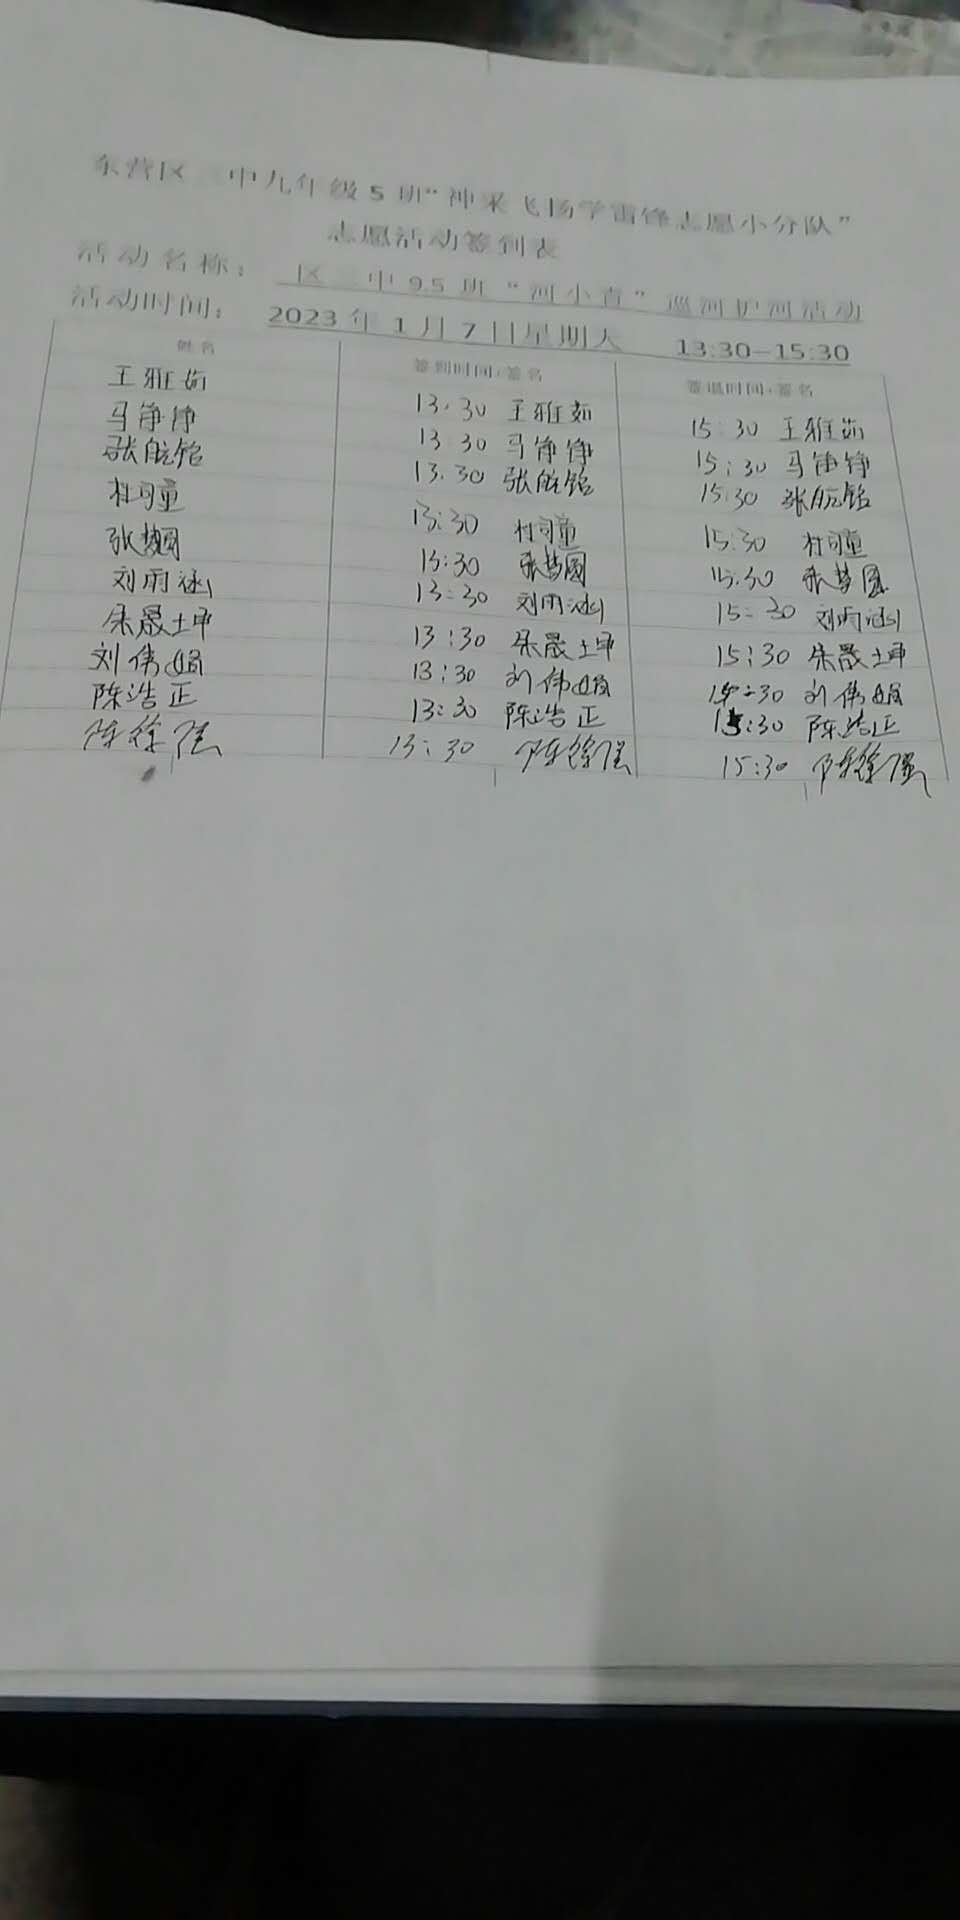 东营区三中九年级5班“神采飞扬学雷锋志愿小分队”
志愿活动签到表
活动名称: 区三中9.5班“河小青”巡河护河活动
活动时间: 2023年1月7日星期六 13:30—15:30
姓名 签到时间+签名 签退时间+签名
王雅茹 13:30 王雅茹 15:30 王雅茹
马铮铮 13:30 马铮铮 15:30 马铮铮
张皖铭 13:30 张皖铭 15:30 张皖铭
杜司童 13:30 杜司童 15:30 杜司童
张梦圆 13:30 张梦圆 15:30 张梦圆
刘雨涵 13:30 刘雨涵 15:30 刘雨涵
朱晟坤 13:30 朱晟坤 15:30 朱晟坤
刘伟娟 13:30 刘伟娟 15:30 刘伟娟
陈浩正 13:30 陈浩正 15:30 陈浩正
陈徐强 13:30 陈徐强 15:30 陈徐强